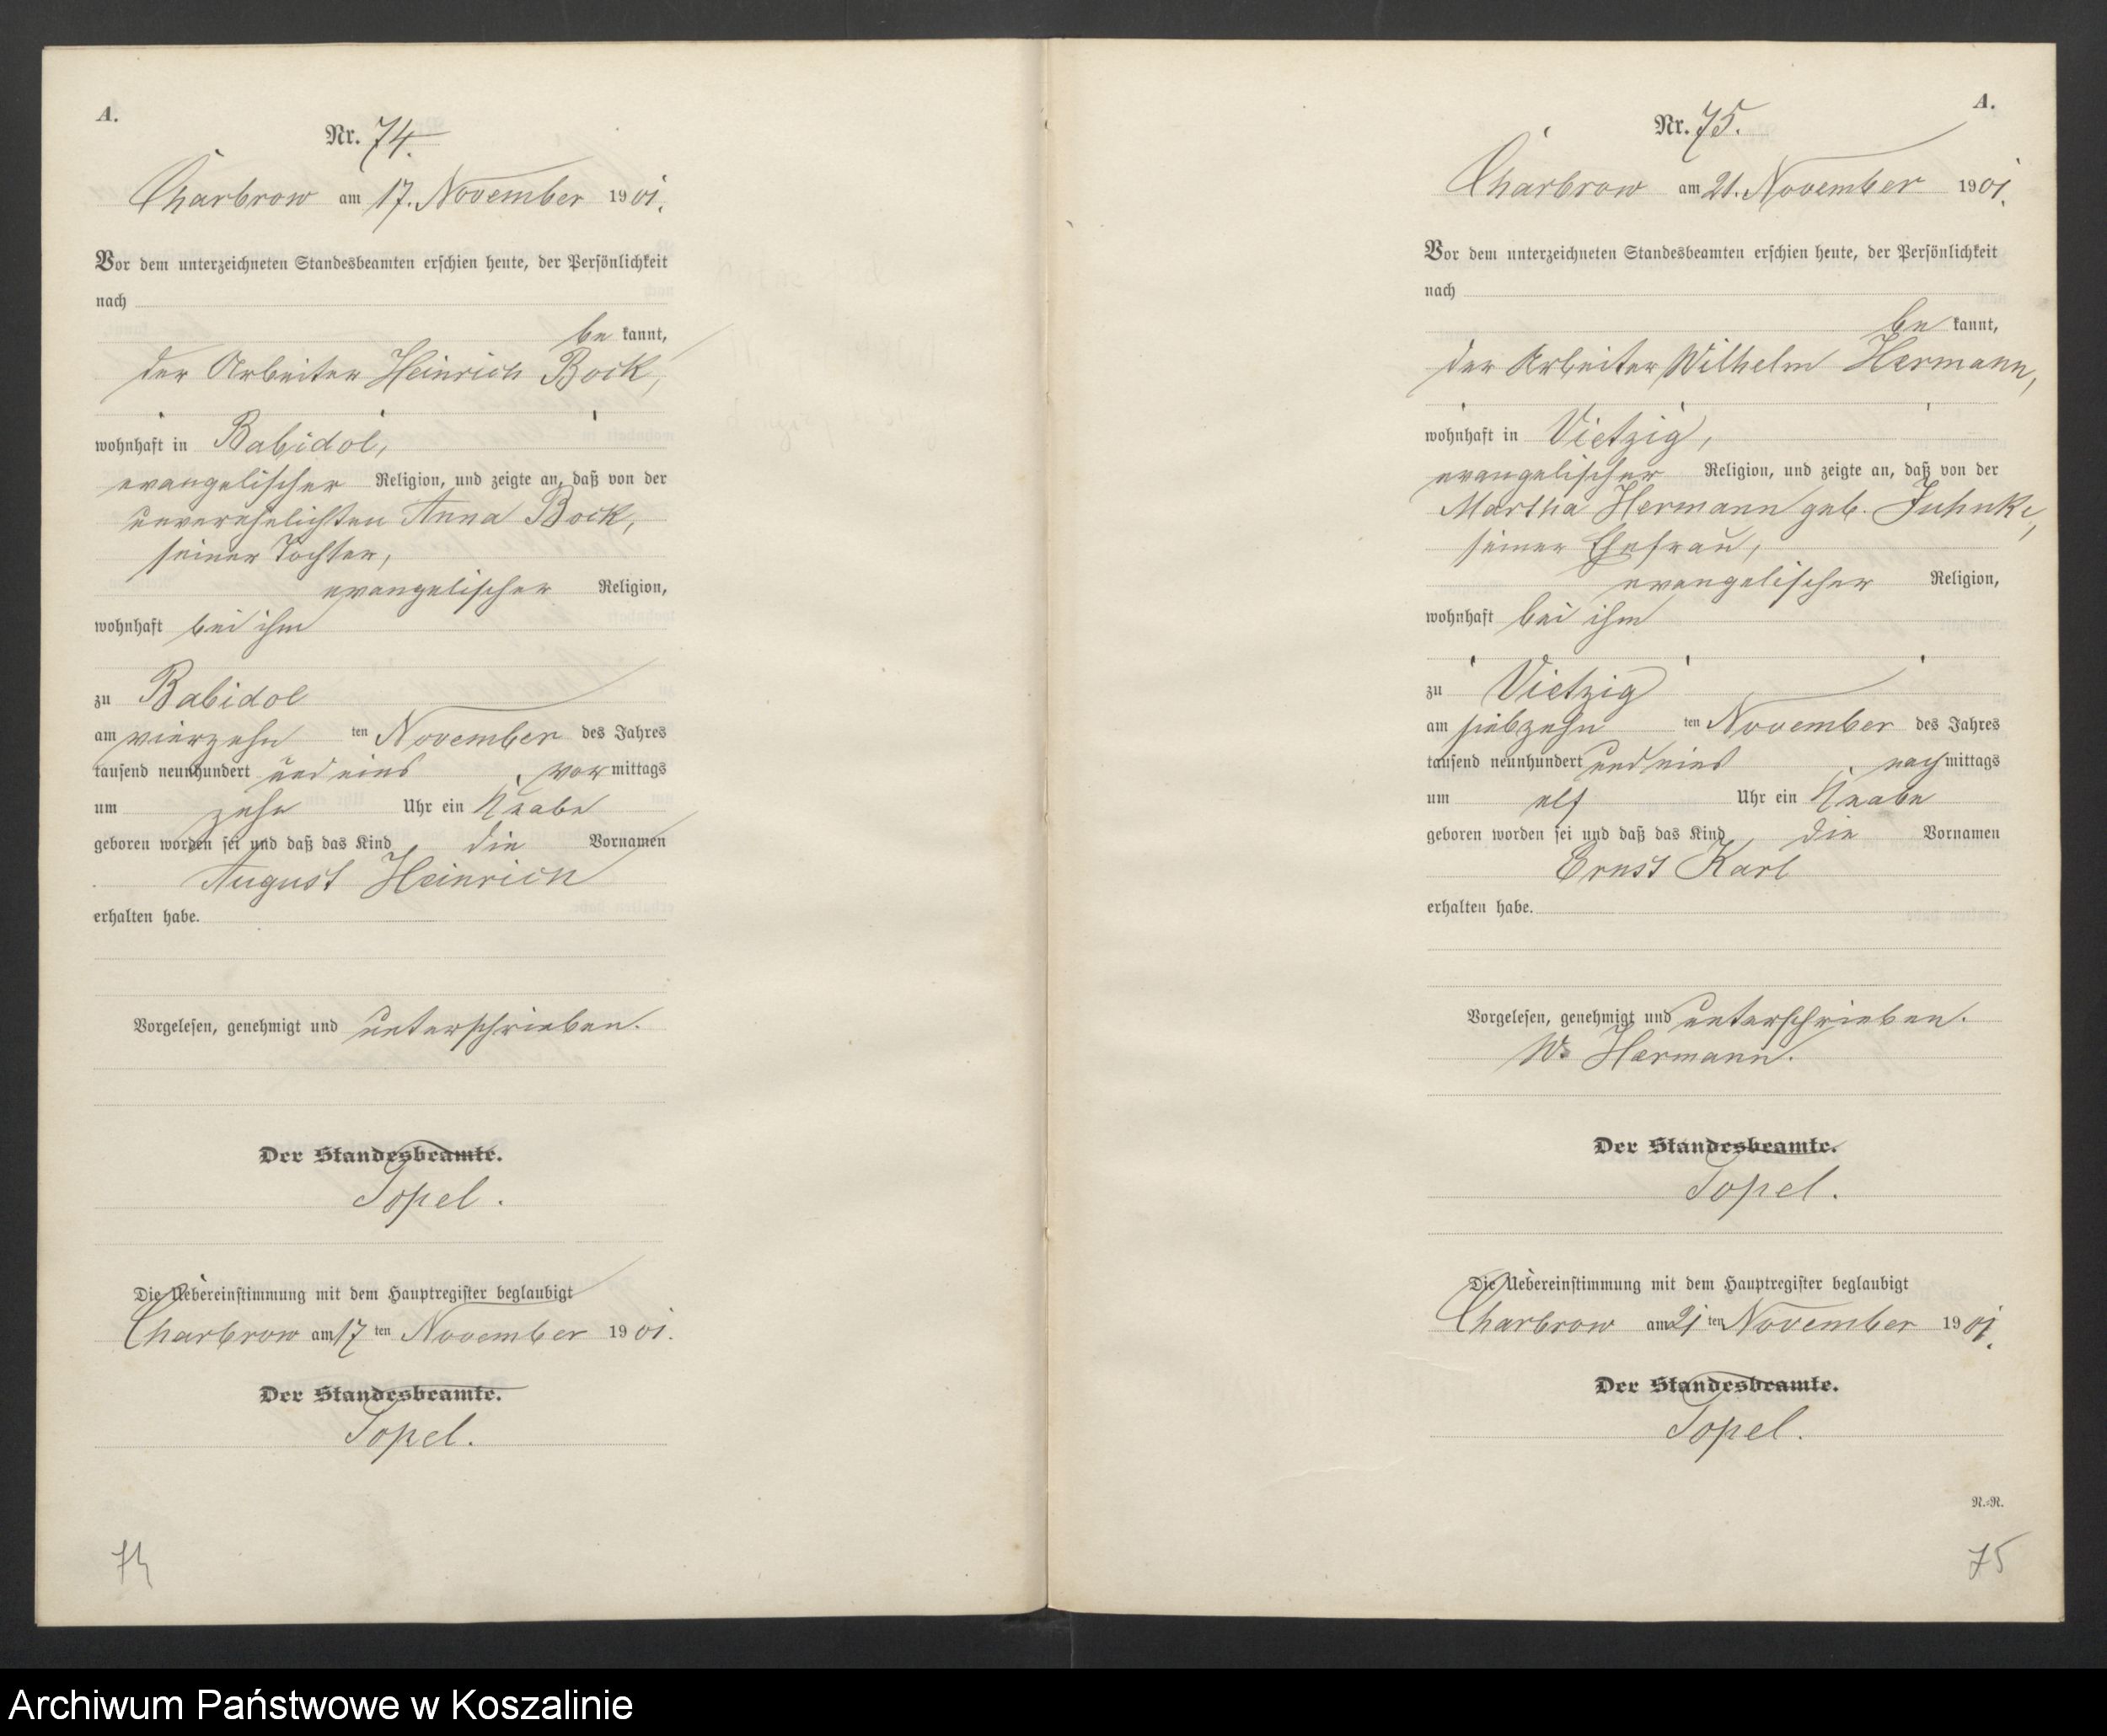 A.
Nr. 74.
Charbrow am 17. November 1901.
Vor dem unterzeichneten Standesbeamten erschien heute, der Persönlichkeit
nach
be kannt,
der Arbeiter Heinrich Bock,
wohnhaft in Babidol,
evangelischer Religion, und zeigte an, daß von der
unverehelichten Anna Bock,
seiner Tochter,
evangelischer Religion,
wohnhaft bei ihm
zu Babidol
am vierzehn ten November des Jahres
tausend neunhundert und eins, vor mittags
um zehn Uhr ein Knabe
geboren worden sei und daß das Kind die Vornamen
August Heinrich
erhalten habe.
Vorgelesen, genehmigt und unterschrieben.
Der Standesbeamte.
Topel.
Die Uebereinstimmung mit dem Hauptregister beglaubigt
Charbrow am 17 ten November 1901.
Der Standesbeamte.
Topel.
74
A.
Nr. 75.
Charbrow am 21. November 1901.
Vor dem unterzeichneten Standesbeamten erschien heute, der Persönlichkeit
nach
be kannt,
der Arbeiter Wilhelm Hermann,
wohnhaft in Vietzig,
evangelischer Religion, und zeigte an, daß von der
Martha Hermann geb. Juhnke,
seiner Ehefrau,
evangelischer Religion,
wohnhaft bei ihm
zu Vietzig
am siebzehn ten November des Jahres
tausend neunhundert und eins, nach mittags
um elf Uhr ein Knabe
geboren worden sei und daß das Kind die Vornamen
Ernst Karl
erhalten habe.
Vorgelesen, genehmigt und unterschrieben.
W. Hermann.
Der Standesbeamte.
Topel.
Die Uebereinstimmung mit dem Hauptregister beglaubigt
Charbrow am 21 ten November 1901.
Der Standesbeamte.
Topel.
N.-R.
75
Archiwum Państwowe w Koszalinie